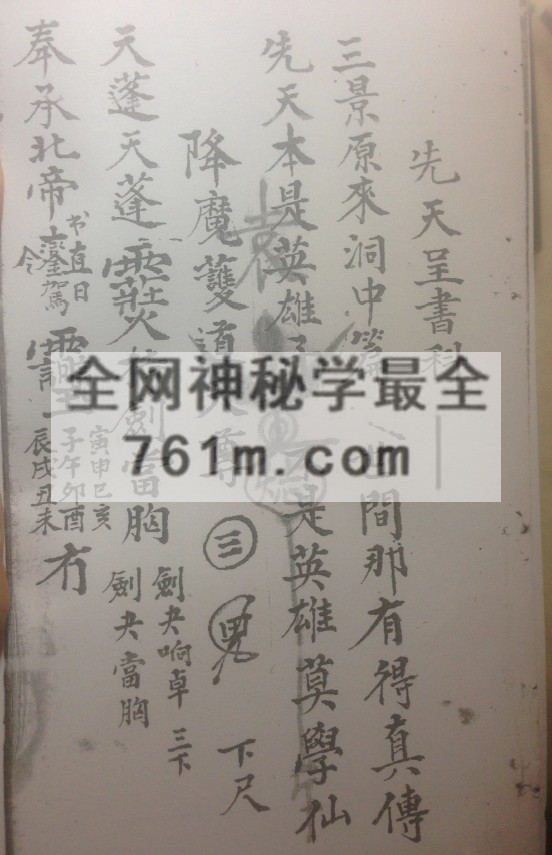 先天呈書科
三景原來洞中 世間那有得真傳
先天本是英雄 不是英雄莫學仙
降魔護道天尊 三 下尺
天蓬天蓬 劍當胸 劍夬响卓三下 劍夬當胸
奉承北帝 书直日 令 駕 寅申巳亥 子午卯酉 辰戌丑未
全网神秘学最全
761m.com